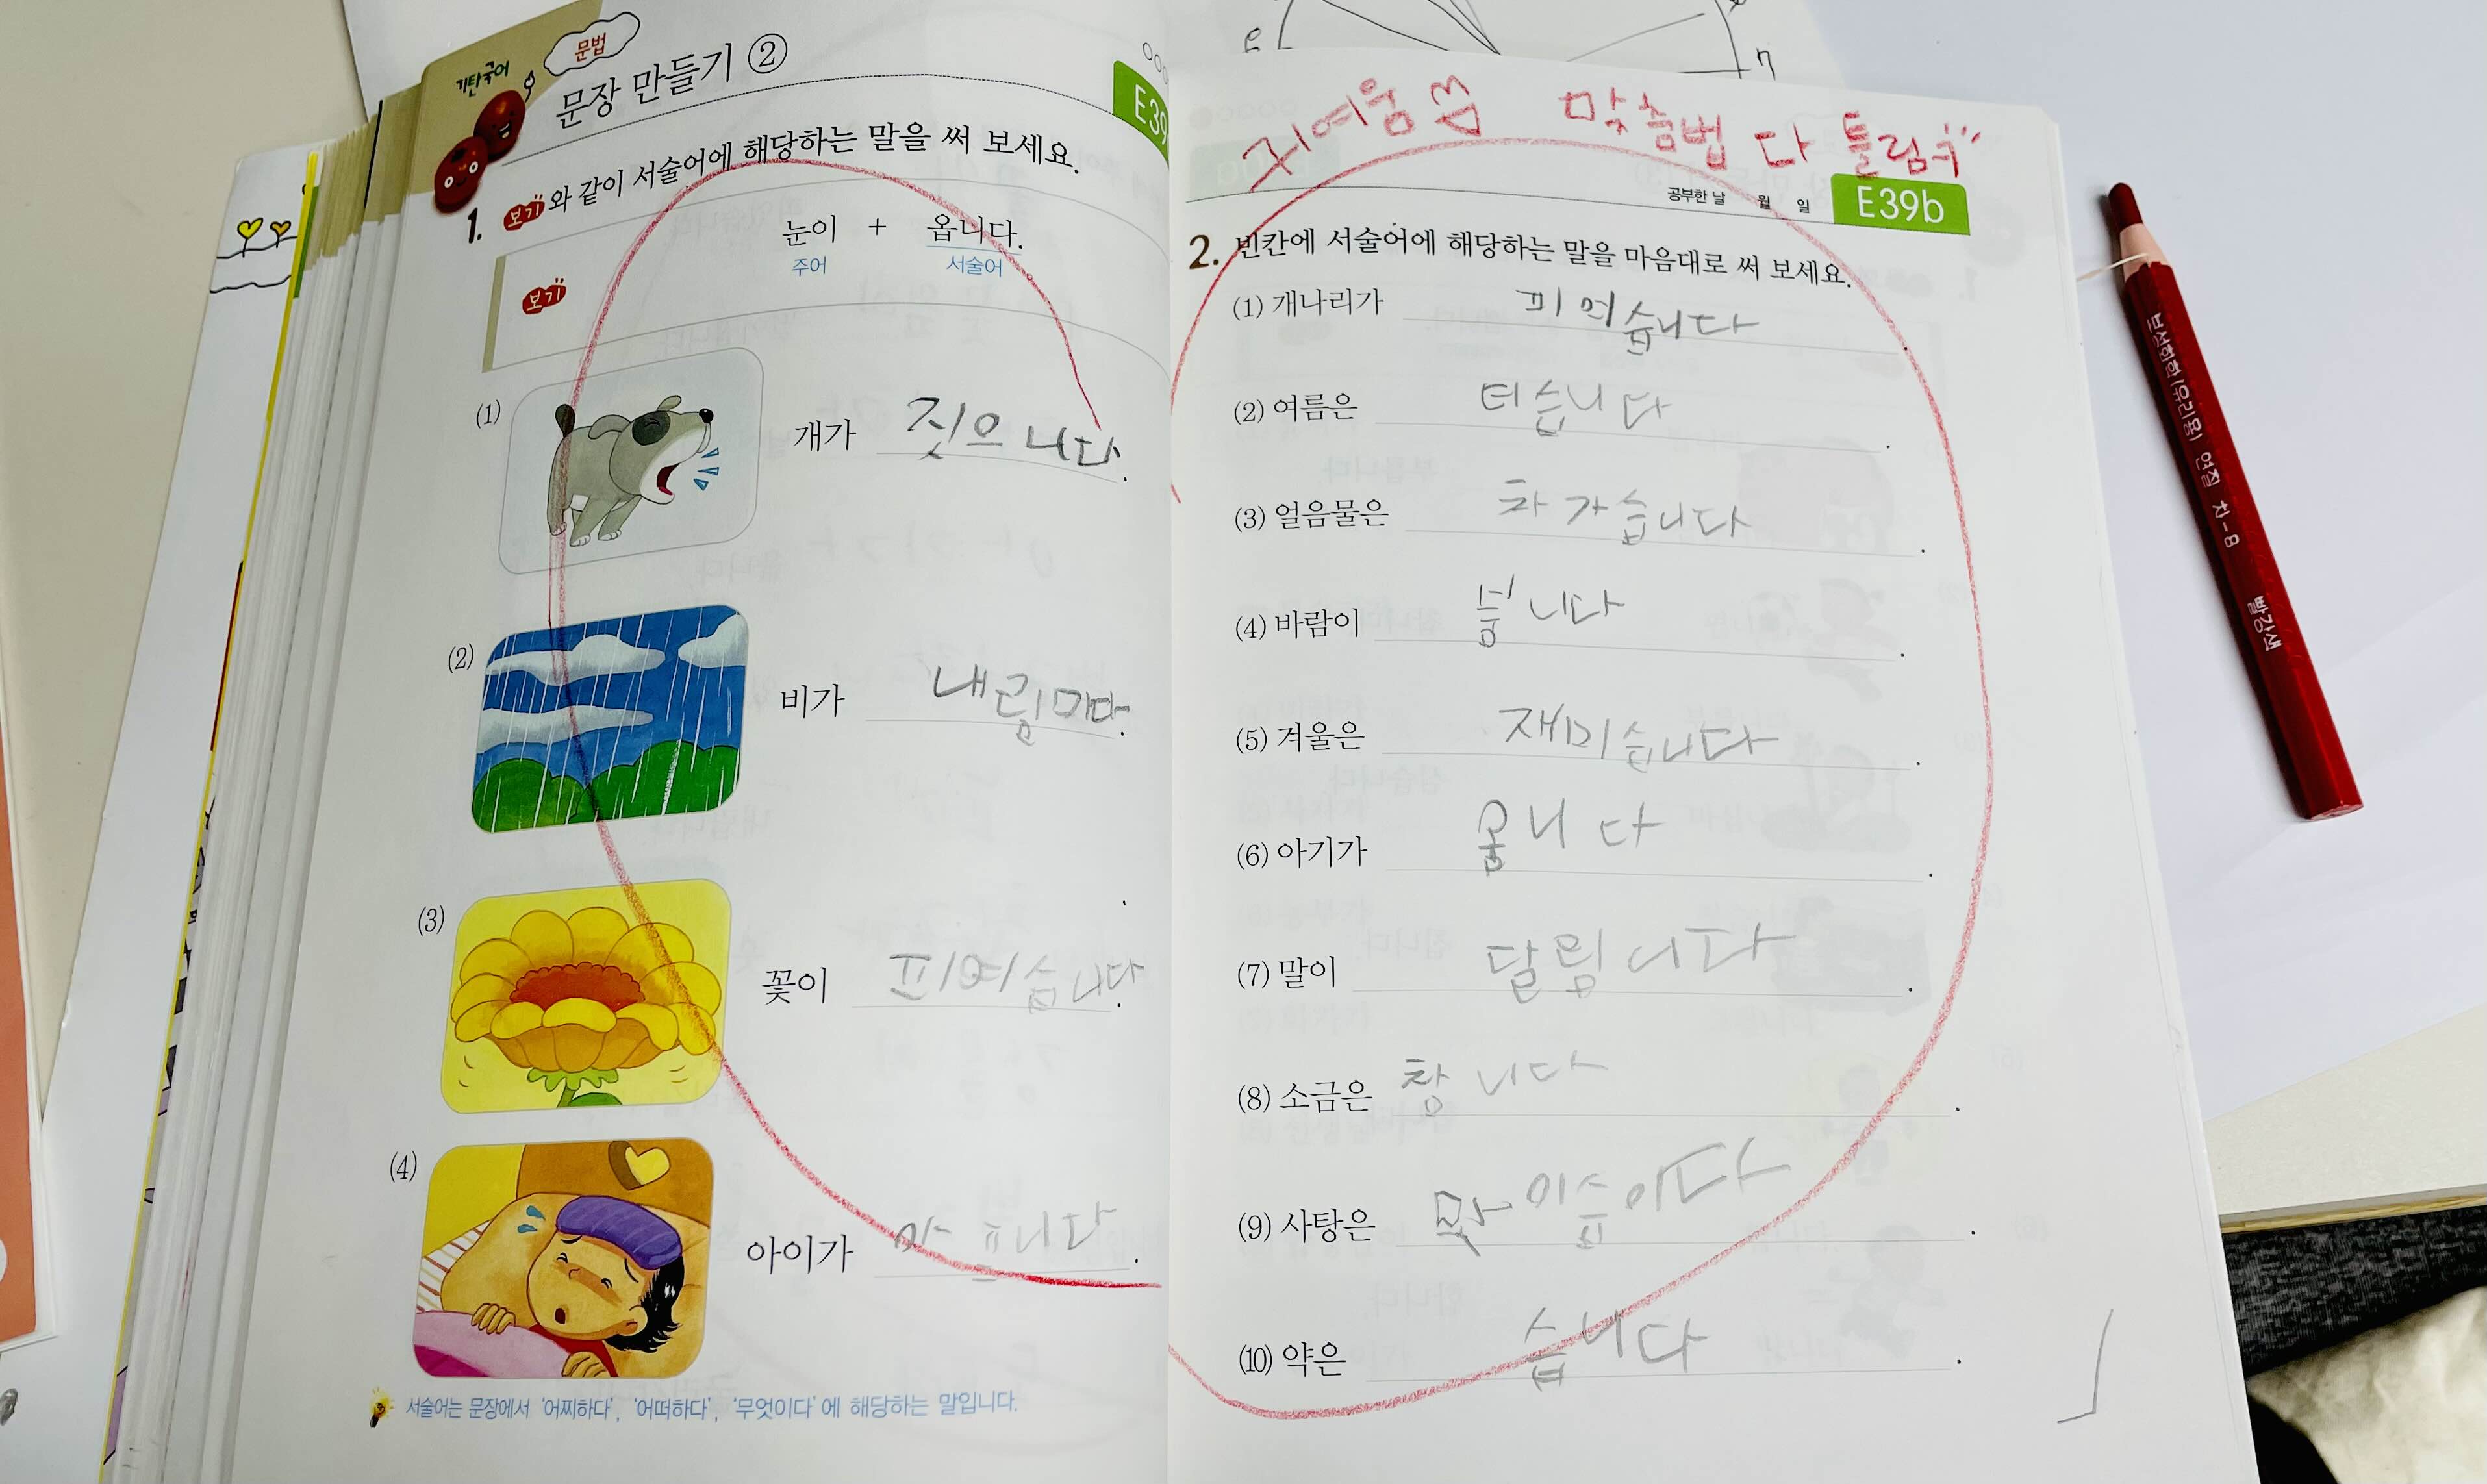 기탄국어
문법
문장 만들기 ②
E39
1. 보기와 같이 서술어에 해당하는 말을 써 보세요.
보기
눈이 + 옵니다.
주어 서술어
(1) 개가 짓으니다.
(2) 비가 내림미다.
(3) 꽃이 피여습니다.
(4) 아이가 아프니다.
서술어는 문장에서 '어찌하다', '어떠하다', '무엇이다'에 해당하는 말입니다.
6
7
귀여움 맞춤법 다 틀림
공부한 날 월 일
E39b
2. 빈칸에 서술어에 해당하는 말을 마음대로 써 보세요.
(1) 개나리가 피여습니다.
(2) 여름은 더습니다.
(3) 얼음물은 차가습니다.
(4) 바람이 붑니다.
(5) 겨울은 재미습니다.
(6) 아기가 웁니다.
(7) 말이 달림니다.
(8) 소금은 참니다.
(9) 사탕은
(10) 약은 습니다.
보성하한(유리용) 연질 차-8 빨강색